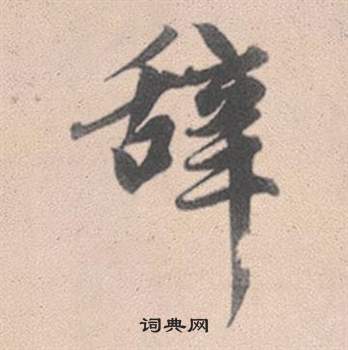 辞
词典网